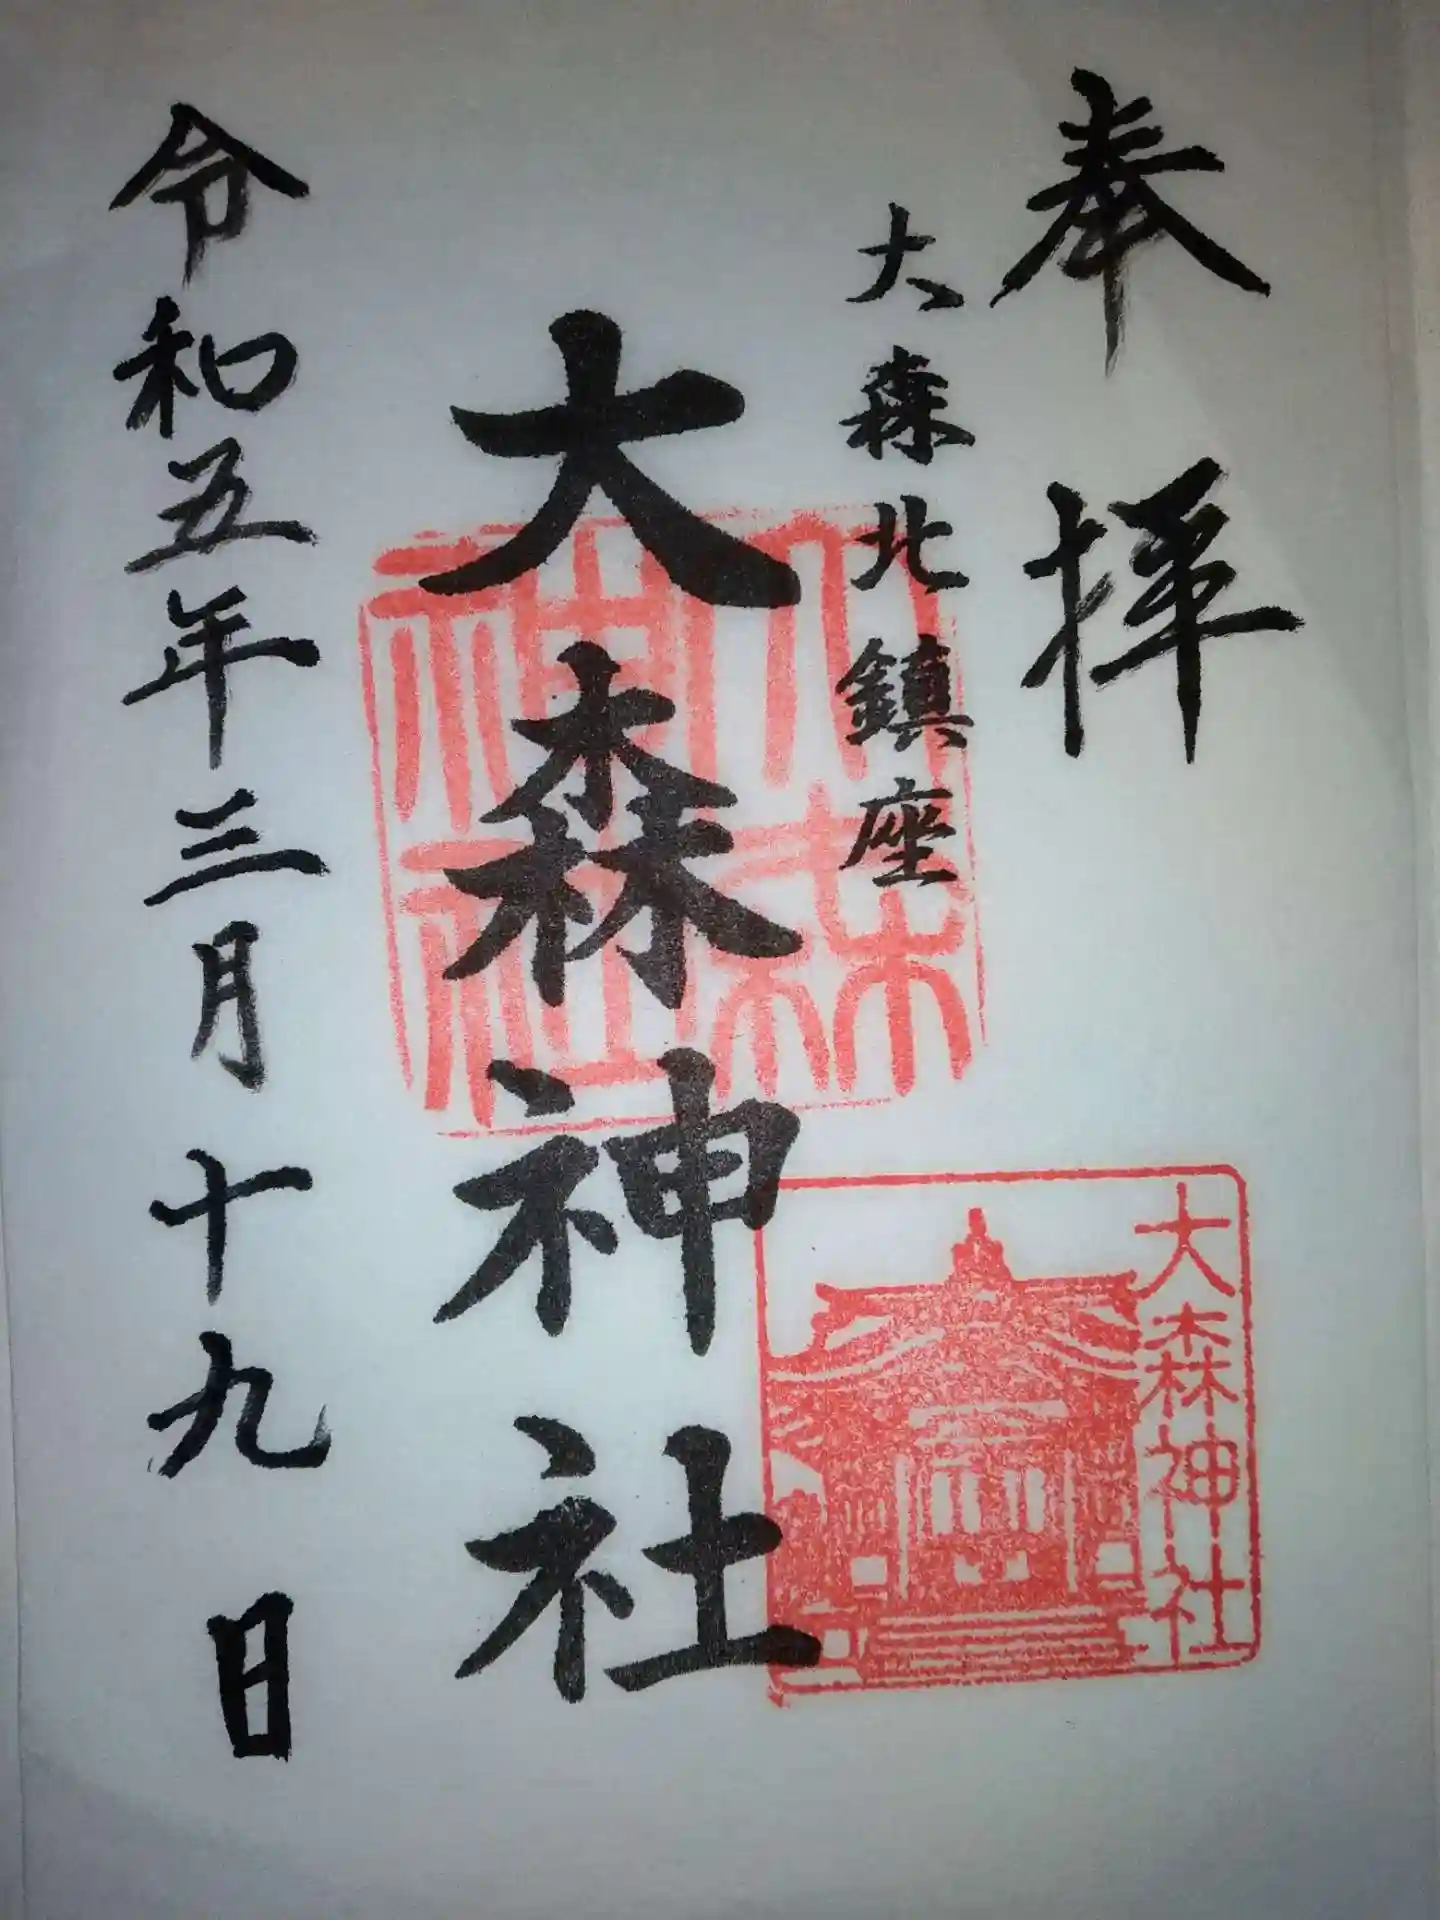 奉拝
大森北鎮座
大森神社
令和五年三月十九日
大森
神社
大森神社